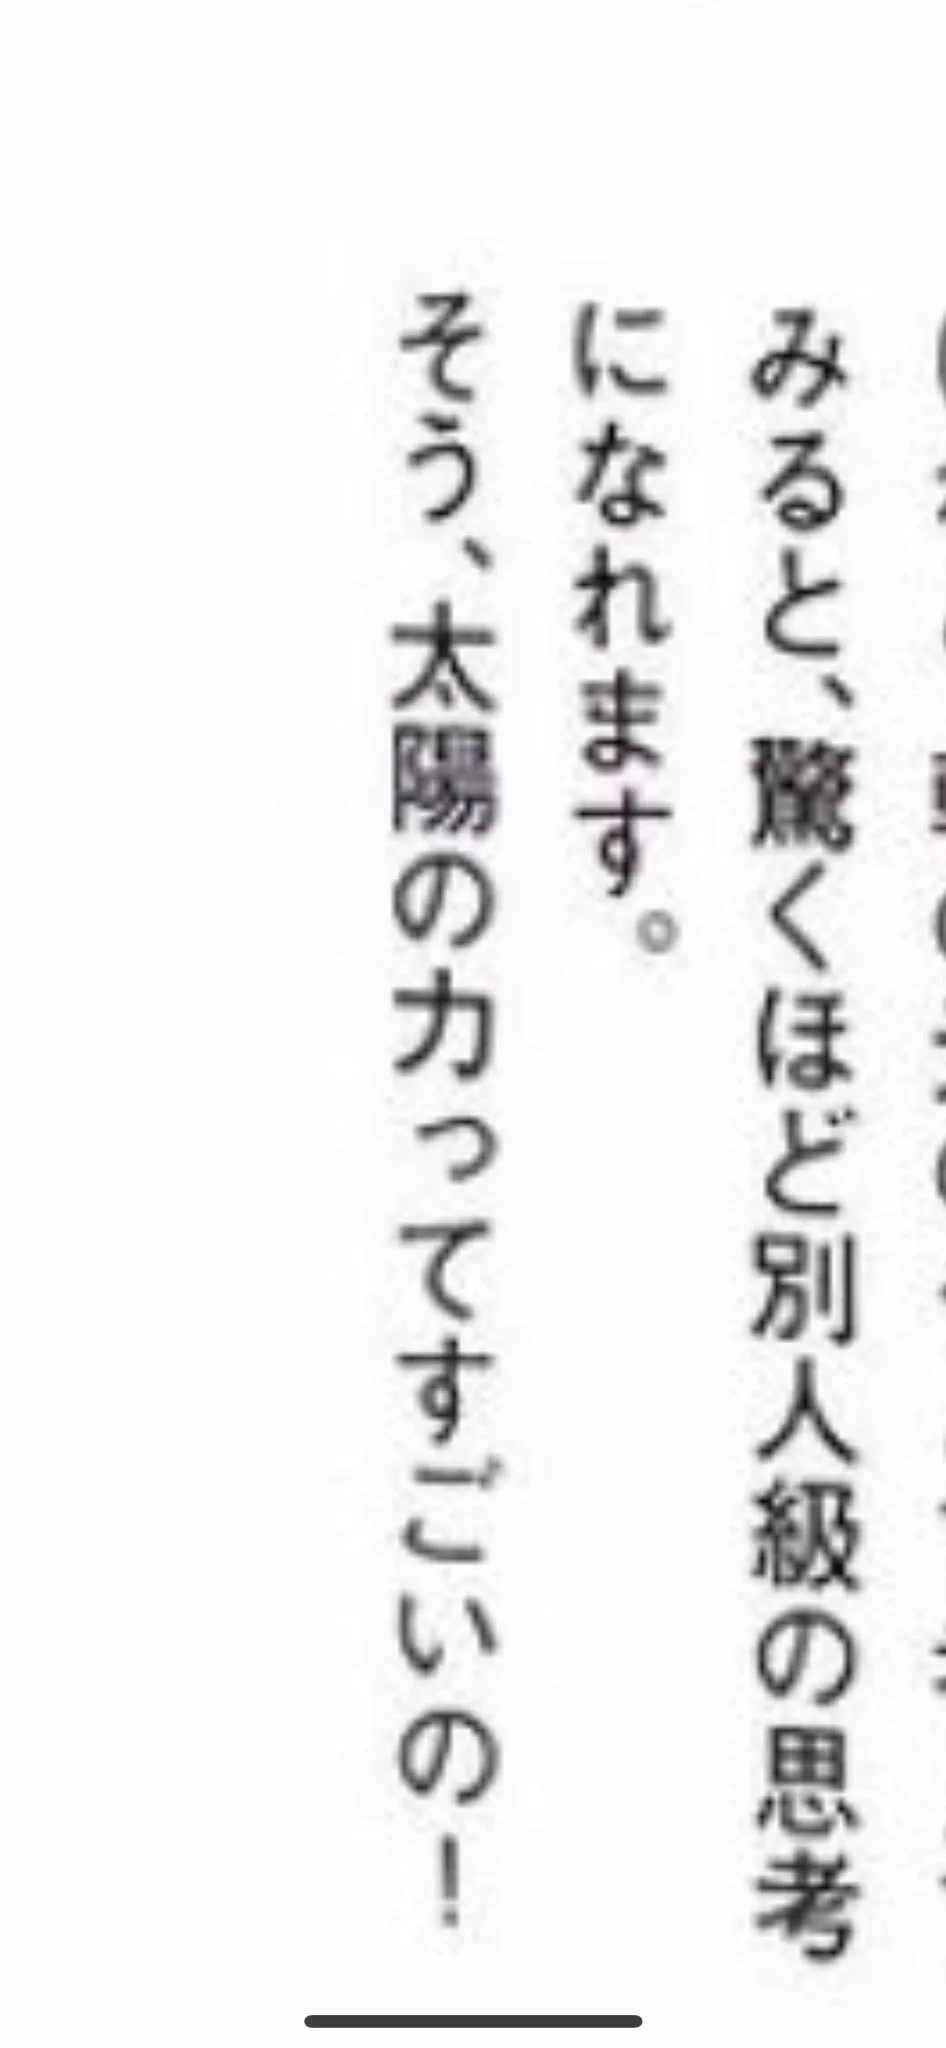 みると、驚くほど別人級の思考
になれます。
そう、太陽の力ってすごいの！